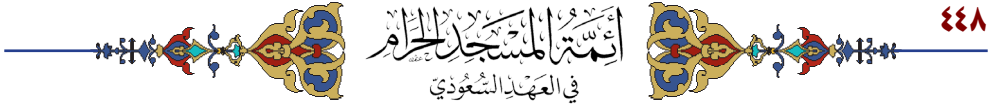 ٤٤٨
أَئِمَّةُ المَسْجِدِ الحَرَامِ
فِي العَهْدِ السُّعُودِيّ